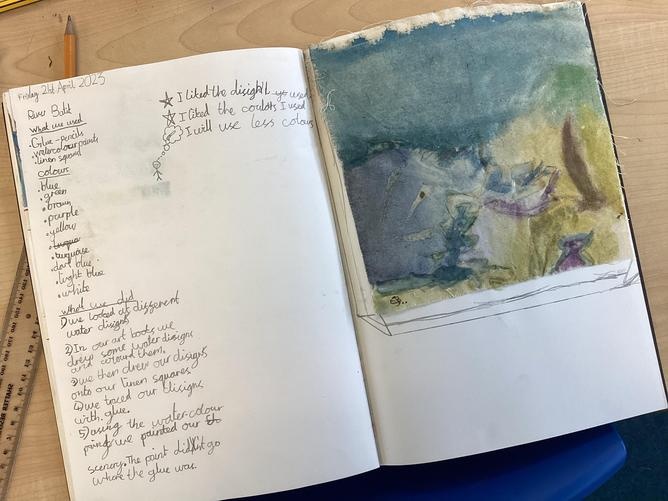 Friday 21st April 2023
River Batik
what we used
.Glue -pencils
.watercolour paints
.linen squared
colours
.blue
.green
.brown
.purple
.yellow
.turquose
.dark blue
.light blue
.white
what we did
1)we looked at different
water disigns
2)In our art books we
drew some water disigns
and colourd them.
3)we then drew our disigns
onto our linen squares
4)we traced our disigns
with glue.
5)using the water-colour
paints we painted our
scenery. The paint didn't go
where the glue was.
I liked the disign I used
I liked the colours I used
I will use less colours
SHATTER RESISTANT